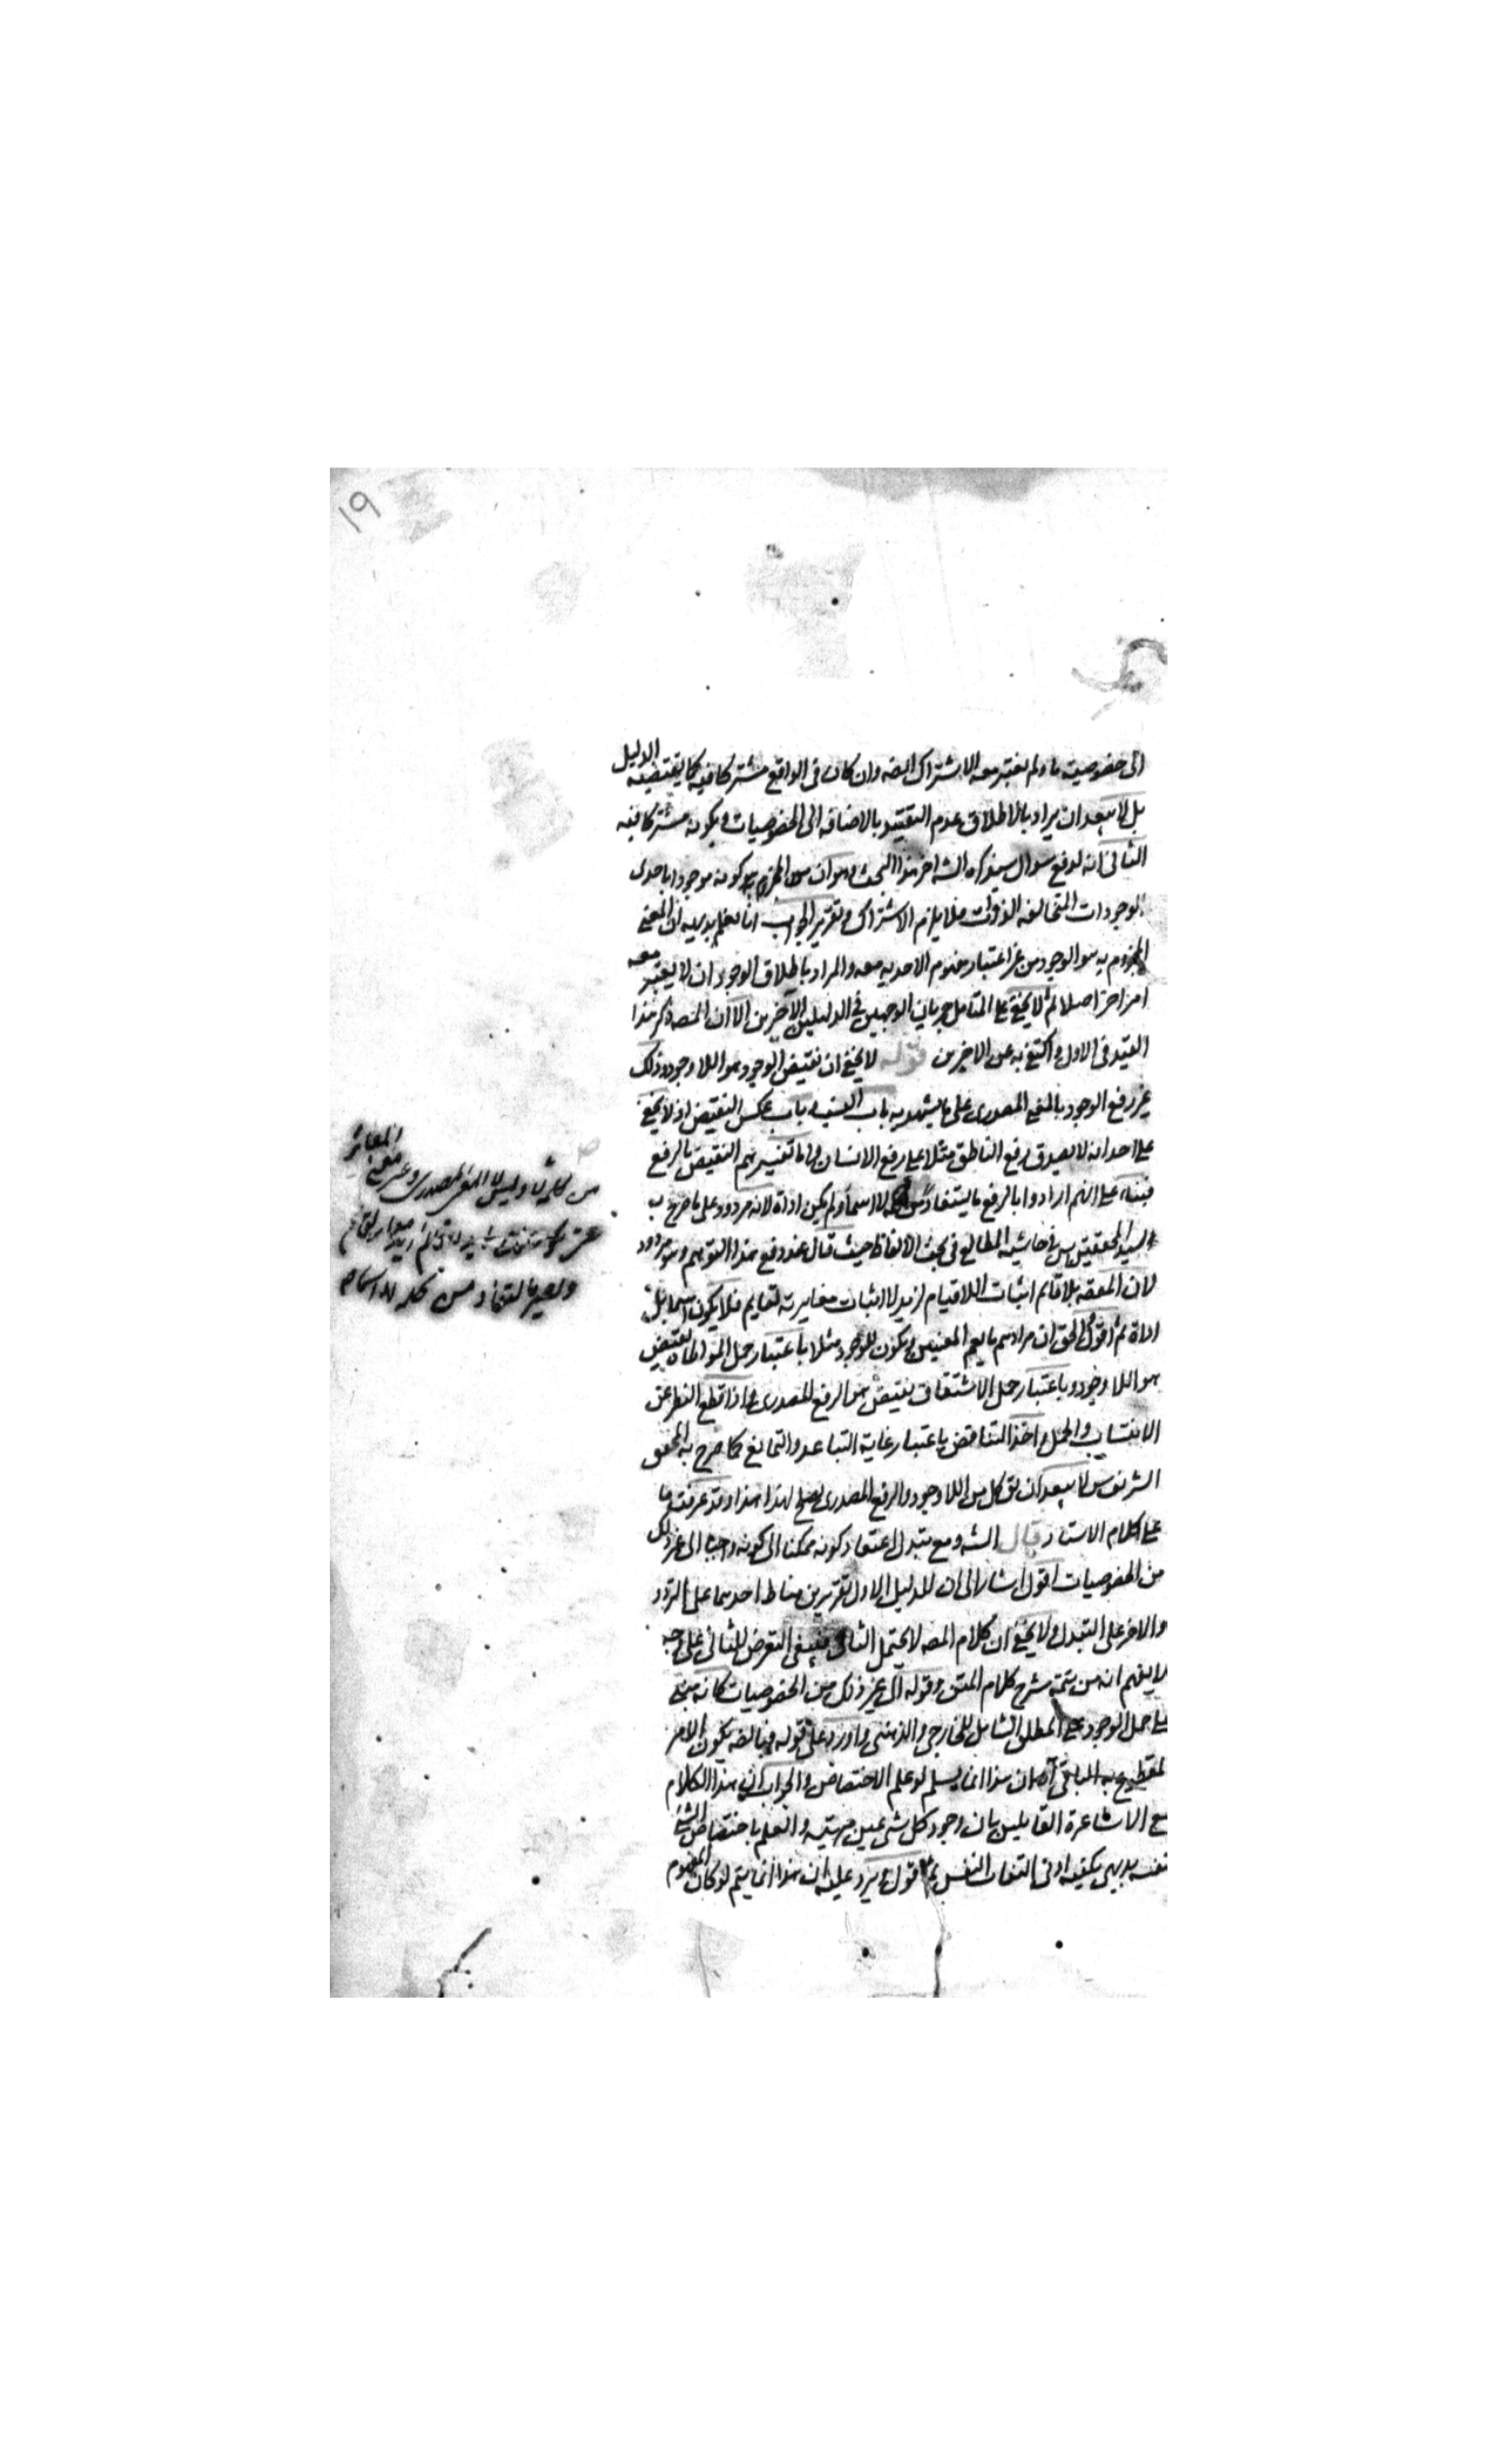 ١٩
الى خصوصية ما ولم يعتبر معه الاشتراك ايضه وان كان فى الواقع مشتركا فيه كما يقتضيه الدليل
بل لا يبعد ان يراد بالاطلاق عدم التقييد بالاضافه الى الخصوصيات ويكون مشتركا فيه
الثانى انه لدفع سوال سيذكره الشه اخر هذا البحث وهو ان المجزوم به كونه موجودا باحدى
الوجودات المتخالفه الذوات فلا يلزم الاشتراك وتقرير الجواب انا نعلم بديهيه ان المعنى
المجزوم به هو الوجود من غير اعتبار مفهوم الاحديه معه والمراد باطلاق الوجود ان لا يعتبر معه
امر اخر اصلا ثم لا يخفى على المتامل جريان الوجهين فى الدليلين الاخرين الا ان المصه ذكر هذا
القيد فى الاول واكتفى به عن الاخرين قوله لا يخفى ان نقيض الوجود هو اللا وجود وذلك
غير رفع الوجود بالمعنى المصدرى على ما يشهد به باب النسب وباب عكس النقيض اذ لا يخفى
على احد انه لا يصدق رفع الناطق مثلا على رفع الانسان واما تفسيرهم النقيض بالرفع
فبناء على انهم ارادوا بالرفع ما يستفاد من كلمة لا اسما ولم يكن اداة لانه مردود على ما صرح به
سيد المحققين س فى حاشيه المطالع فى بحث الالفاظ حيث قال عند دفع هذا التوهم وهو مردود
لان المقصه بلا قايم اثبات اللاقيام لزيد لا اثبات مغايرته لقايم فلا يكون اسما بل
اداة ثم اقول الحق ان مرادهم ما يعم المعنيين ويكون للوجود مثلا باعتبار حمل المواطاه نقيض
هو اللا وجود وباعتبار حمل الاشتقاق نقيض هو الرفع المصدرى واذا قطع النظر عن
الانتساب والحمل واخذ التناقض باعتبار غاية التباعد والتمانع كما صرح به المحقق
الشريف س لا يبعد ان يق كل من اللا وجود والرفع المصدرى يصلح لهذا هذا وقد عرفت ما
على كلام الاستاد قال الشه ومع تبدل اعتقاد كونه ممكنا الى كونه واجبا الى غير ذلك
من الخصوصيات اقول اشار الى ان للدليل الاول تقريرين مناط احدهما على التردد
والاخر على التبدل ولا يخفى ان كلام المصه لا يحتمل الثانى فينبغى التعرض للثانى على وجه
لا يفهم انه من تتمة شرح كلام المتن وقوله الى غير ذلك من الخصوصيات كانه مبنى
على حمل الوجود على المطلق الشامل للخارجى والذهنى واورد على قوله فبالضه يكون الامر
المقطوع به الباقى آه ان هذا انما يسلم لو علم الاختصاص والجواب ان هذا الكلام
مع الاشاعرة القايلين بان وجود كل شى عين مهيته والعلم باختصاص الشئ
بنفسه بديهى يكفيه ادنى التفات النفس ثم اقول ويرد عليه ان هذا انما يتم لو كان المفهوم
من كلمة لا وليس المعنى المصدرى وغير معنى المغاير